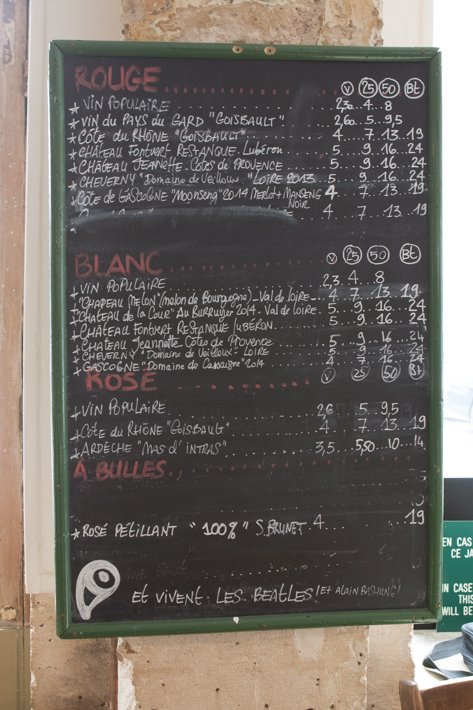 ROUGE V 25 50 Bt
VIN POPULAIRE 4 8
VIN DU PAYS DU GARD "GOISBAULT" 5 9,5
CÔTE DU RHÔNE "GOISBAULT" 4 7 13 19
CHÂTEAU FONTVERT RESTANQUE Lubéron 5 9 16 24
CHÂTEAU JEANNETTE CÔTES DE PROVENCE 5 9 16 24
CHEVERNY "Domaine de Veilloux" "LOIRE 2013 5 9 16 24
CÔTE DE GASCOGNE "MOONSENG" 2014 Merlot + MANSENG NOIR 4 7 13 19
4 7 13 19
BLANC V 25 50 Bt
VIN POPULAIRE 2,3 4 8
"CHAPEAU MELON" (melon de Bourgogne) Val de LOIRE 4 7 13 19
"CHÂTEAU DE LA COUR" 2014 Val de LOIRE 5 9 16 24
CHÂTEAU FONTVERT RESTANQUE LUBÉRON 5 9 16 24
CHÂTEAU Jeannette Côtes de Provence 5 9 16 24
CHEVERNY "Domaine de Veilloux" LOIRE 5 9 16 24
GASCOGNE "Domaine de 2014 4 7 16 24
ROSÉ V 25 50 Bt
VIN POPULAIRE 2,6 5 9,5
CÔTE DU RHÔNE "GOISBAULT" 4 7 13 19
ARDÈCHE "MAS D'INTRAS" 3,5 5,50 10 14
À BULLES
ROSÉ PÉTILLANT "100%" S. BRUNET 4 19
ET VIVENT LES BEATLES! ET ALAIN BASHUNG!
EN CAS
CE JA
IN CASE
THIS
WILL BE